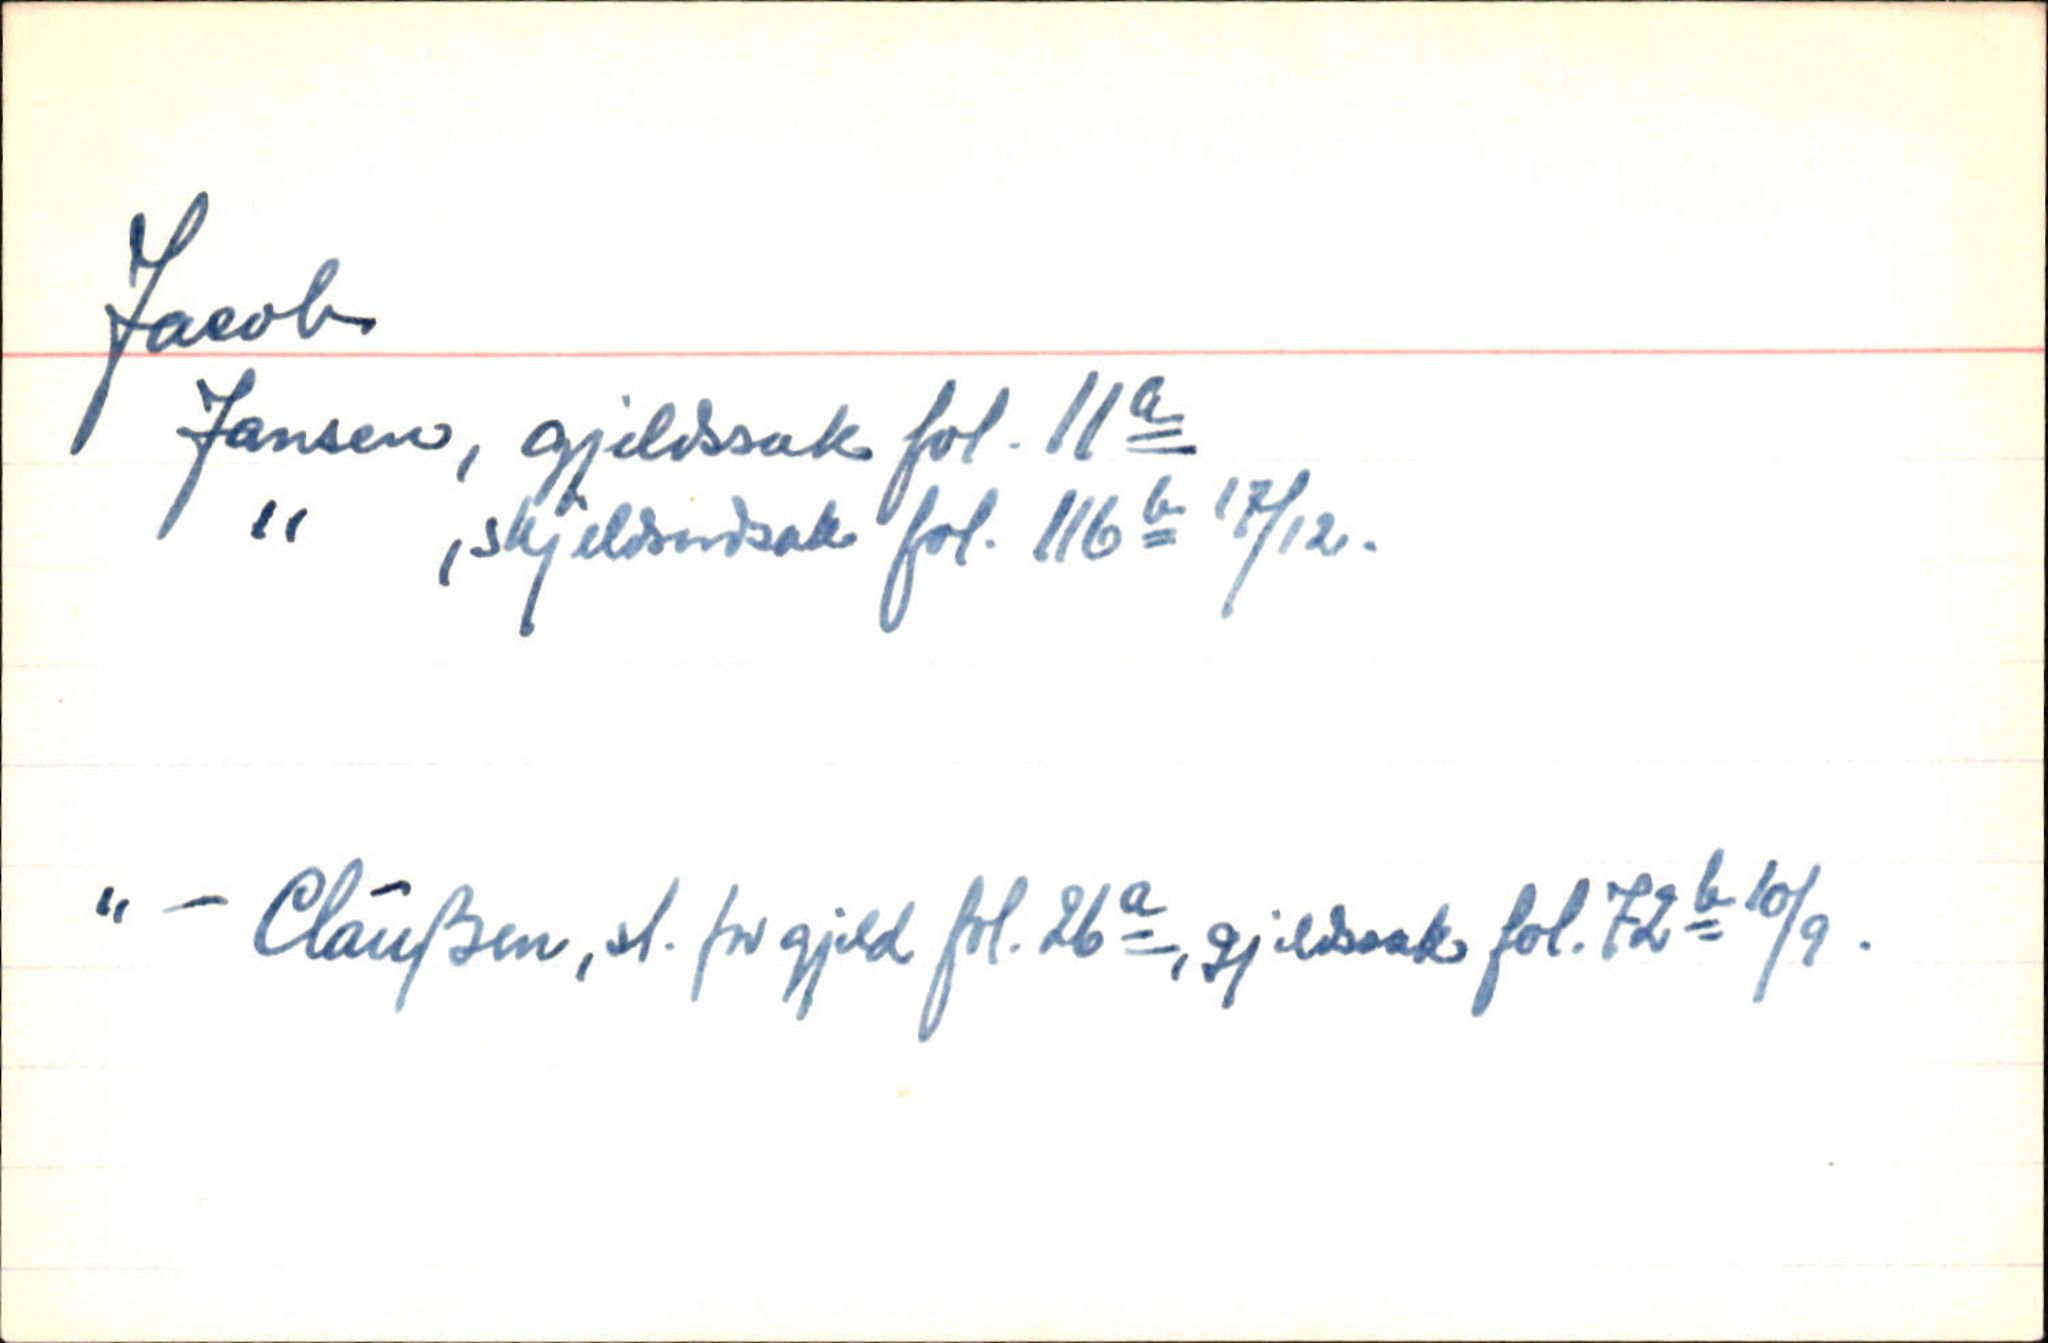 Jacob
Jansen, gjeldssak fol. 11a
" , skjeldsordsak fol. 116b 17/12.
" — Claußen, st. for gjeld fol. 26a, gjeldssak fol. 72b 10/9.